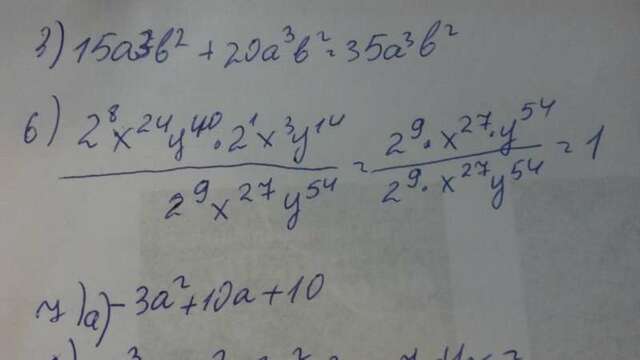 3) 15a³b² + 20a³b² = 35a³b²
6) (2⁸x²⁴y⁴⁰ · 2¹x³y¹⁴) / (2⁹x²⁷y⁵⁴) = (2⁹ · x²⁷ · y⁵⁴) / (2⁹ · x²⁷y⁵⁴) = 1
7) a) - 3a² + 10a + 10